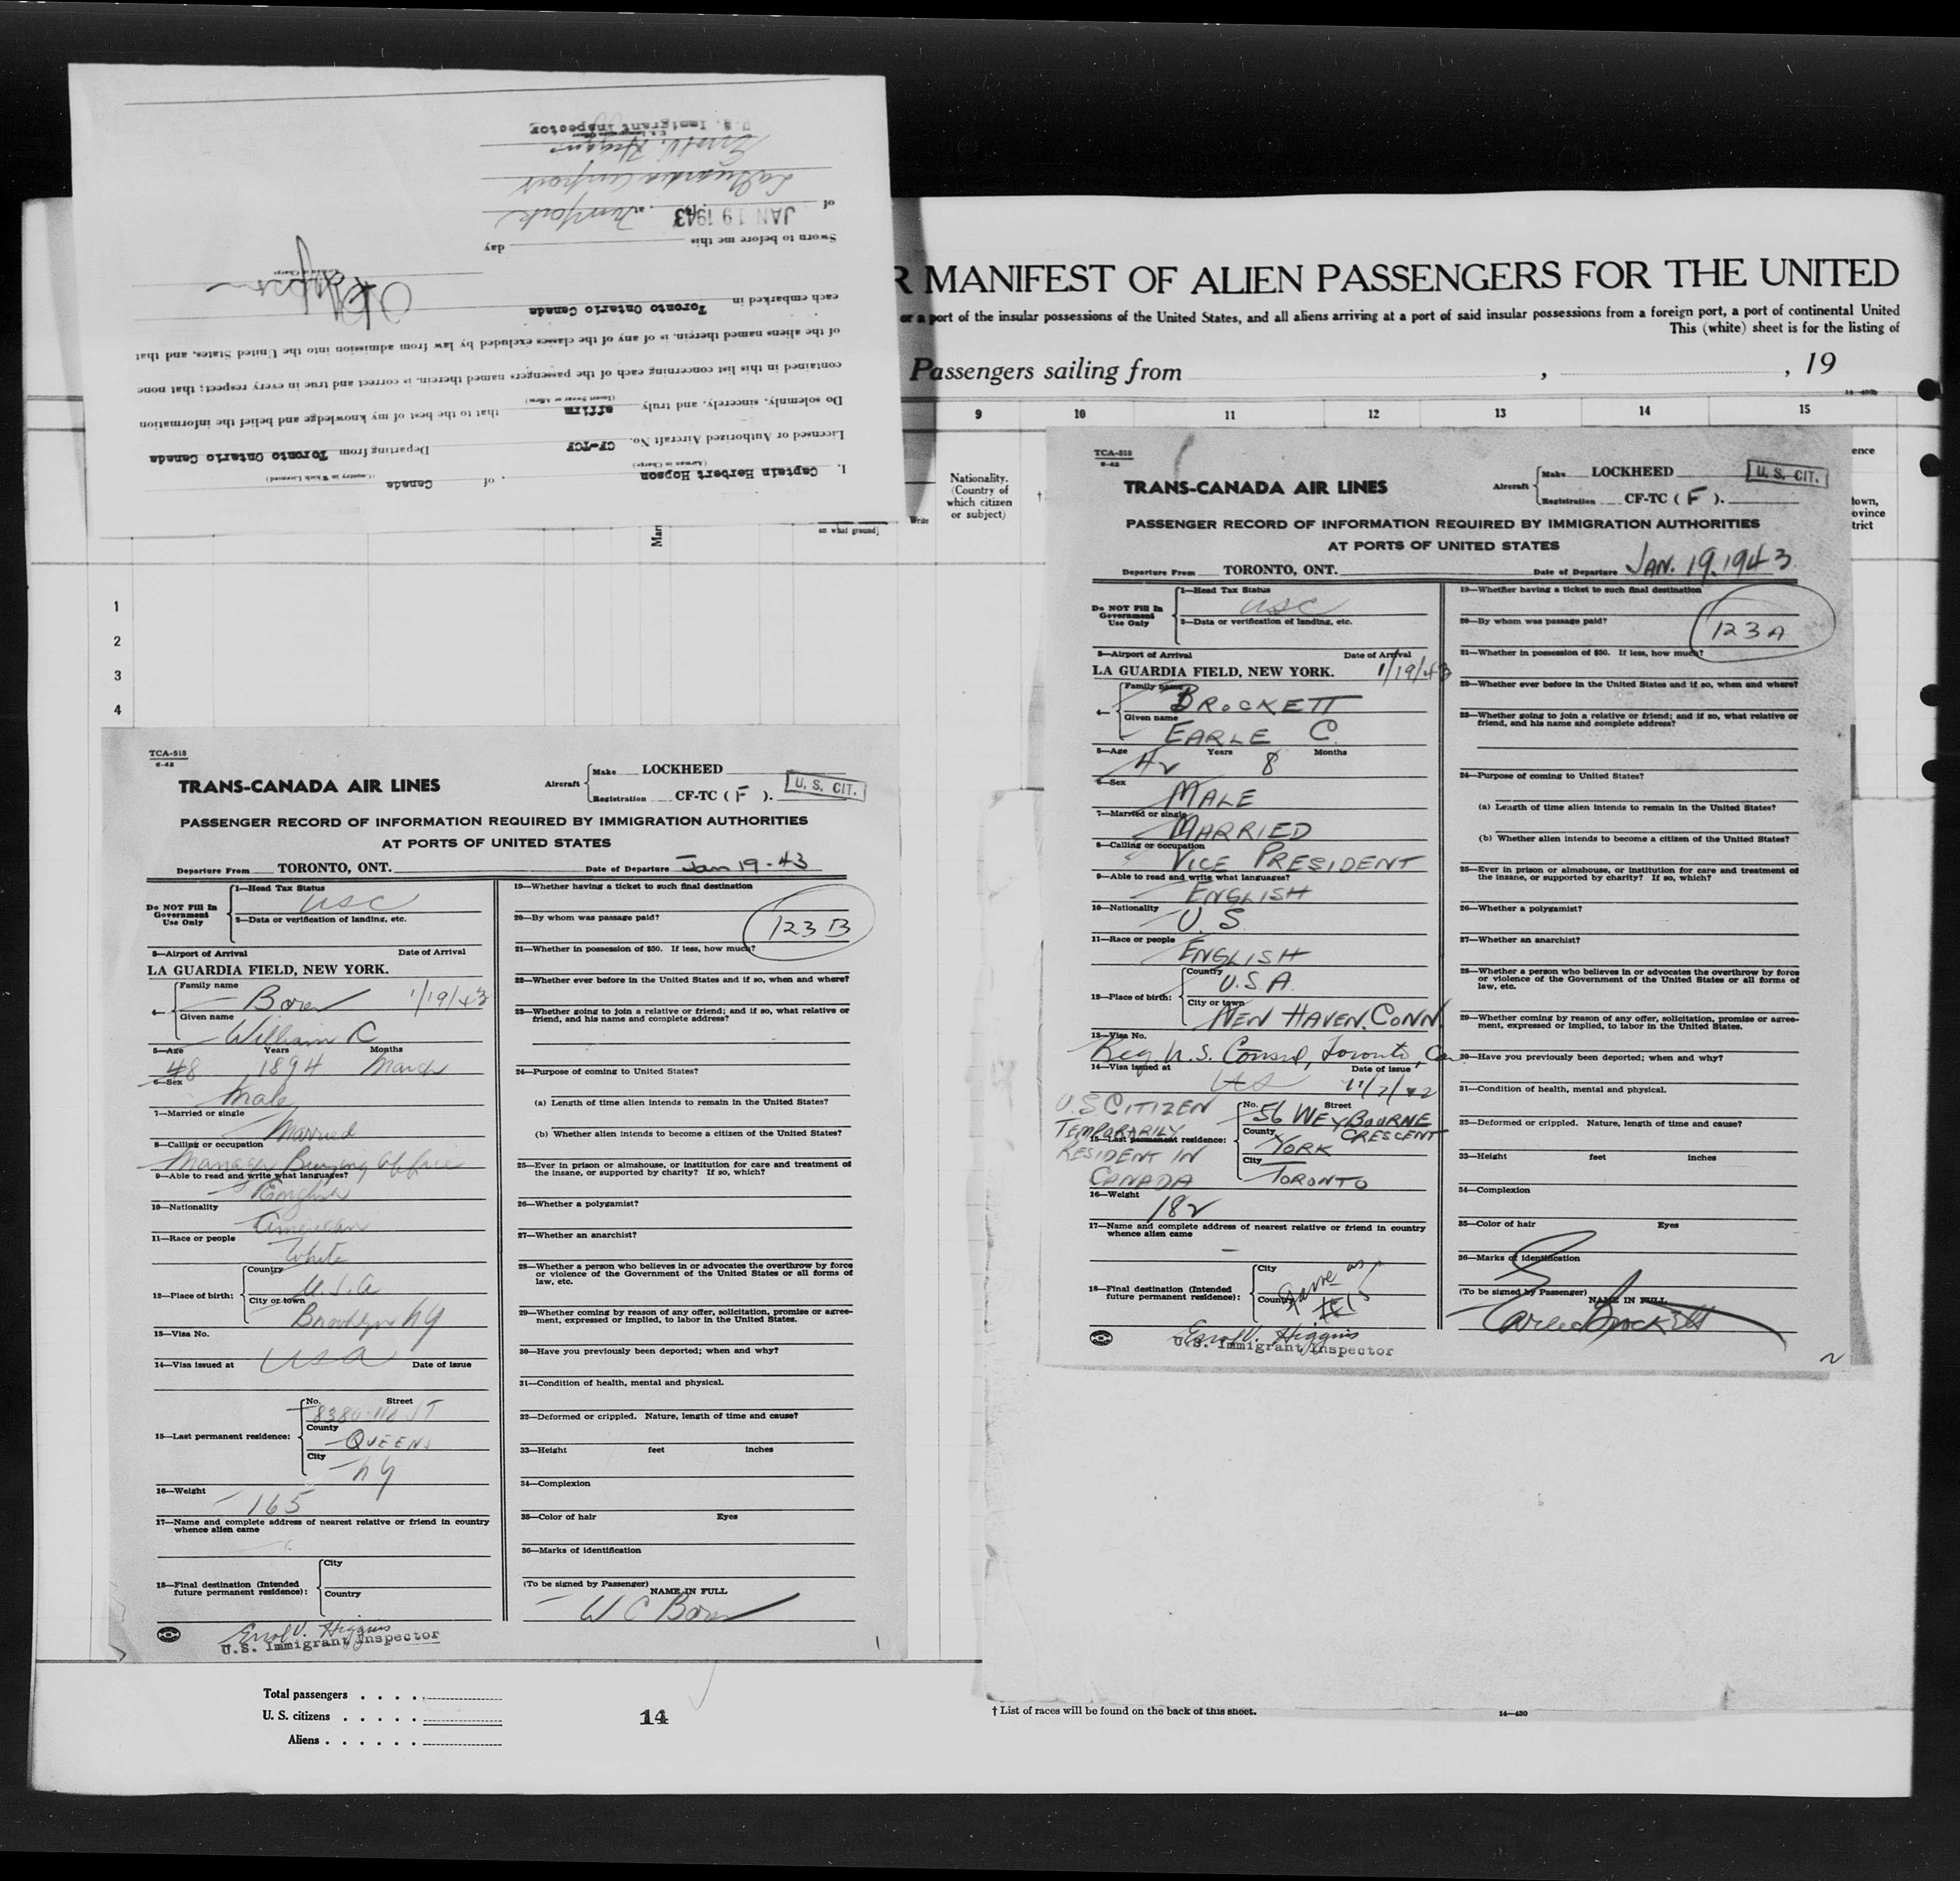 I, Captain Herbert Hopson of Canada
(Airman in Charge) (Country in Which Licensed)
Licensed or Authorized Aircraft No. CF-TCF Departing from Toronto Ontario Canada
Do solemnly, sincerely, and truly affirm that to the best of my knowledge and belief the information
(Insert Swear or Affirm)
contained in this list concerning each of the passengers named therein, is correct and true in every respect; that none
of the aliens named therein, is of any of the classes excluded by law from admission into the United States, and that
each embarked in Toronto Ontario Canada
Sworn to before me this day
of JAN 19 1943, at New York
LaGuardia Airport
Errol V. Higgins
U.S. Immigrant Inspector
R MANIFEST OF ALIEN PASSENGERS FOR THE UNITED
or a port of the insular possessions of the United States, and all aliens arriving at a port of said insular possessions from a foreign port, a port of continental United
This (white) sheet is for the listing of
Passengers sailing from , , 19
9 10 11 12 13 14 15
Nationality.
(Country of
which citizen
or subject)
Write
on what ground]
ence
town,
ovince
trict
1
2
3
4
TCA-518
6-42
TRANS-CANADA AIR LINES
Aircraft Make LOCKHEED
Registration CF-TC ( F ).
U. S. CIT.
PASSENGER RECORD OF INFORMATION REQUIRED BY IMMIGRATION AUTHORITIES
AT PORTS OF UNITED STATES
Departure From TORONTO, ONT. Date of Departure Jan 19-43
Do NOT Fill In
Government
Use Only
1—Head Tax Status
USC
2—Data or verification of landing, etc.
3—Airport of Arrival Date of Arrival
LA GUARDIA FIELD, NEW YORK.
1/19/43
4— Family name
Given name
William C
5—Age Years Months
48 1894 March
6—Sex
Male
7—Married or single
Married
8—Calling or occupation
Manager Buying Office
9—Able to read and write what languages?
English
10—Nationality
American
11—Race or people
White
12—Place of birth: Country
U.S.A
City or town
Brooklyn NY
13—Visa No.
14—Visa issued at Date of issue
USA
15—Last permanent residence: No. Street
8380-118 ST
County
QUEENS
City
NY
16—Weight
165
17—Name and complete address of nearest relative or friend in country
whence alien came
18—Final destination (Intended
future permanent residence): City
Country
Errol V. Higgins
U.S. Immigrant Inspector
19—Whether having a ticket to such final destination
20—By whom was passage paid?
123 B
21—Whether in possession of $50. If less, how much?
22—Whether ever before in the United States and if so, when and where?
23—Whether going to join a relative or friend; and if so, what relative or
friend, and his name and complete address?
24—Purpose of coming to United States?
(a) Length of time alien intends to remain in the United States?
(b) Whether alien intends to become a citizen of the United States?
25—Ever in prison or almshouse, or institution for care and treatment of
the insane, or supported by charity? If so, which?
26—Whether a polygamist?
27—Whether an anarchist?
28—Whether a person who believes in or advocates the overthrow by force
or violence of the Government of the United States or all forms of
law, etc.
29—Whether coming by reason of any offer, solicitation, promise or agree-
ment, expressed or implied, to labor in the United States.
30—Have you previously been deported; when and why?
31—Condition of health, mental and physical.
32—Deformed or crippled. Nature, length of time and cause?
33—Height feet inches
34—Complexion
35—Color of hair Eyes
36—Marks of identification
(To be signed by Passenger)
NAME IN FULL
W C
1
TCA-518
6-42
TRANS-CANADA AIR LINES
Aircraft Make LOCKHEED
Registration CF-TC ( F ).
U. S. CIT.
PASSENGER RECORD OF INFORMATION REQUIRED BY IMMIGRATION AUTHORITIES
AT PORTS OF UNITED STATES
Departure From TORONTO, ONT. Date of Departure JAN. 19. 1943
Do NOT Fill In
Government
Use Only
1—Head Tax Status
USC
2—Data or verification of landing, etc.
3—Airport of Arrival Date of Arrival
LA GUARDIA FIELD, NEW YORK. 1/19/43
4— Family name
BROCKETT
Given name
EARLE C.
5—Age Years Months
42 8
6—Sex
MALE
7—Married or single
MARRIED
8—Calling or occupation
VICE PRESIDENT
9—Able to read and write what languages?
ENGLISH
10—Nationality
U. S.
11—Race or people
ENGLISH
12—Place of birth: Country
U.S.A.
City or town
NEW HAVEN, CONN.
13—Visa No.
Reg. U.S. Consul, Toronto, Can
14—Visa issued at Date of issue
US 11/7/42
U.S. CITIZEN
TEMPORARILY
RESIDENT IN
CANADA
15—Last permanent residence: No. Street
56 WEYBOURNE
CRESCENT
County
YORK
City
TORONTO
16—Weight
182
17—Name and complete address of nearest relative or friend in country
whence alien came
—
18—Final destination (Intended
future permanent residence): City
Country
Same as
#15
Errol V. Higgins
U.S. Immigrant Inspector
19—Whether having a ticket to such final destination
20—By whom was passage paid?
123 A
21—Whether in possession of $50. If less, how much?
22—Whether ever before in the United States and if so, when and where?
23—Whether going to join a relative or friend; and if so, what relative or
friend, and his name and complete address?
24—Purpose of coming to United States?
(a) Length of time alien intends to remain in the United States?
(b) Whether alien intends to become a citizen of the United States?
25—Ever in prison or almshouse, or institution for care and treatment of
the insane, or supported by charity? If so, which?
26—Whether a polygamist?
27—Whether an anarchist?
28—Whether a person who believes in or advocates the overthrow by force
or violence of the Government of the United States or all forms of
law, etc.
29—Whether coming by reason of any offer, solicitation, promise or agree-
ment, expressed or implied, to labor in the United States.
30—Have you previously been deported; when and why?
31—Condition of health, mental and physical.
32—Deformed or crippled. Nature, length of time and cause?
33—Height feet inches
34—Complexion
35—Color of hair Eyes
36—Marks of identification
(To be signed by Passenger)
NAME IN FULL
Earle C Brockett
2
Total passengers
U. S. citizens
Aliens
14
† List of races will be found on the back of this sheet.
14—430